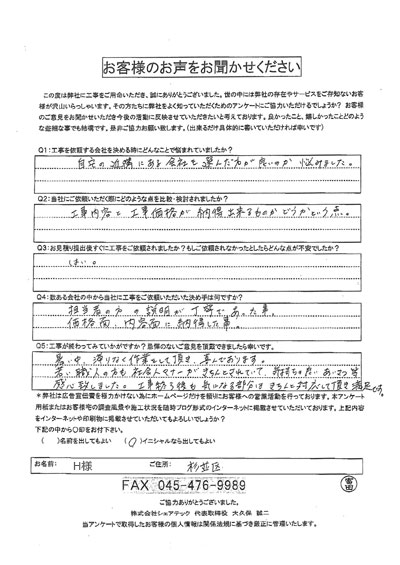 お客様のお声をお聞かせください
この度は弊社に工事をご用命いただき、誠にありがとうございました。世の中には弊社の存在やサービスをご存知ないお客
様が沢山いらっしゃいます。その方たちに弊社をよく知っていただくためのアンケートにご協力いただけるでしょうか？ お客様
のご意見をお聞かせいただき今後の活動に反映させていただきたいと考えております。良かったこと、嬉しかったことどのよう
な些細な事でも結構です。是非ご協力お願い致します。（出来るだけ具体的に書いていただければ幸いです）
Q1：工事を依頼する会社を決める時にどんなことで悩まれていましたか？
自宅の近隣にある会社を選んだ方が良いのか 悩みました。
Q2：当社にご依頼いただく際にどのような点を比較・検討されましたか？
工事内容と工事価格が納得出来るものかどうかという点。
Q3：お見積り提出後すぐに工事をご依頼されましたか？もしご依頼されなかったとしたらどんな点が不安でしたか？
はい。
Q4：数ある会社の中から当社に工事をご依頼いただいた決め手は何ですか？
担当者の方の説明が丁寧であった事。
価格面、内容面に納得した事。
Q5：工事が終わってみていかがですか？忌憚のないご意見を頂戴できましたら幸いです。
暑い中、滞りなく作業をして頂き、喜んでおります。
若い職人の方も社会人マナーがきちんとされていて、気持ちの良いあいさつ等
感心致しました。工事終了後も気になる部分はきちんと対応して頂き満足です。
＊弊社は広告宣伝費を極力かけない為にホームページだけを頼りにお客様への営業活動を行っております。本アンケート
用紙またはお客様宅の調査風景や施工状況を随時ブログ形式のインターネットに掲載させていただいております。上記内容
をインターネットや印刷物に掲載させていただいてもよろしいでしょうか？
下記の中から○印をお付下さい。
（ ）名前を出してもよい （○）イニシャルなら出してもよい
お名前： H様 ご住所： 杉並区
FAX 045-476-9989
ご協力ありがとうございました。
株式会社シェアテック 代表取締役 大久保 誠二
当アンケートで取得したお客様の個人情報は関係法規に基づき厳正に管理いたします。